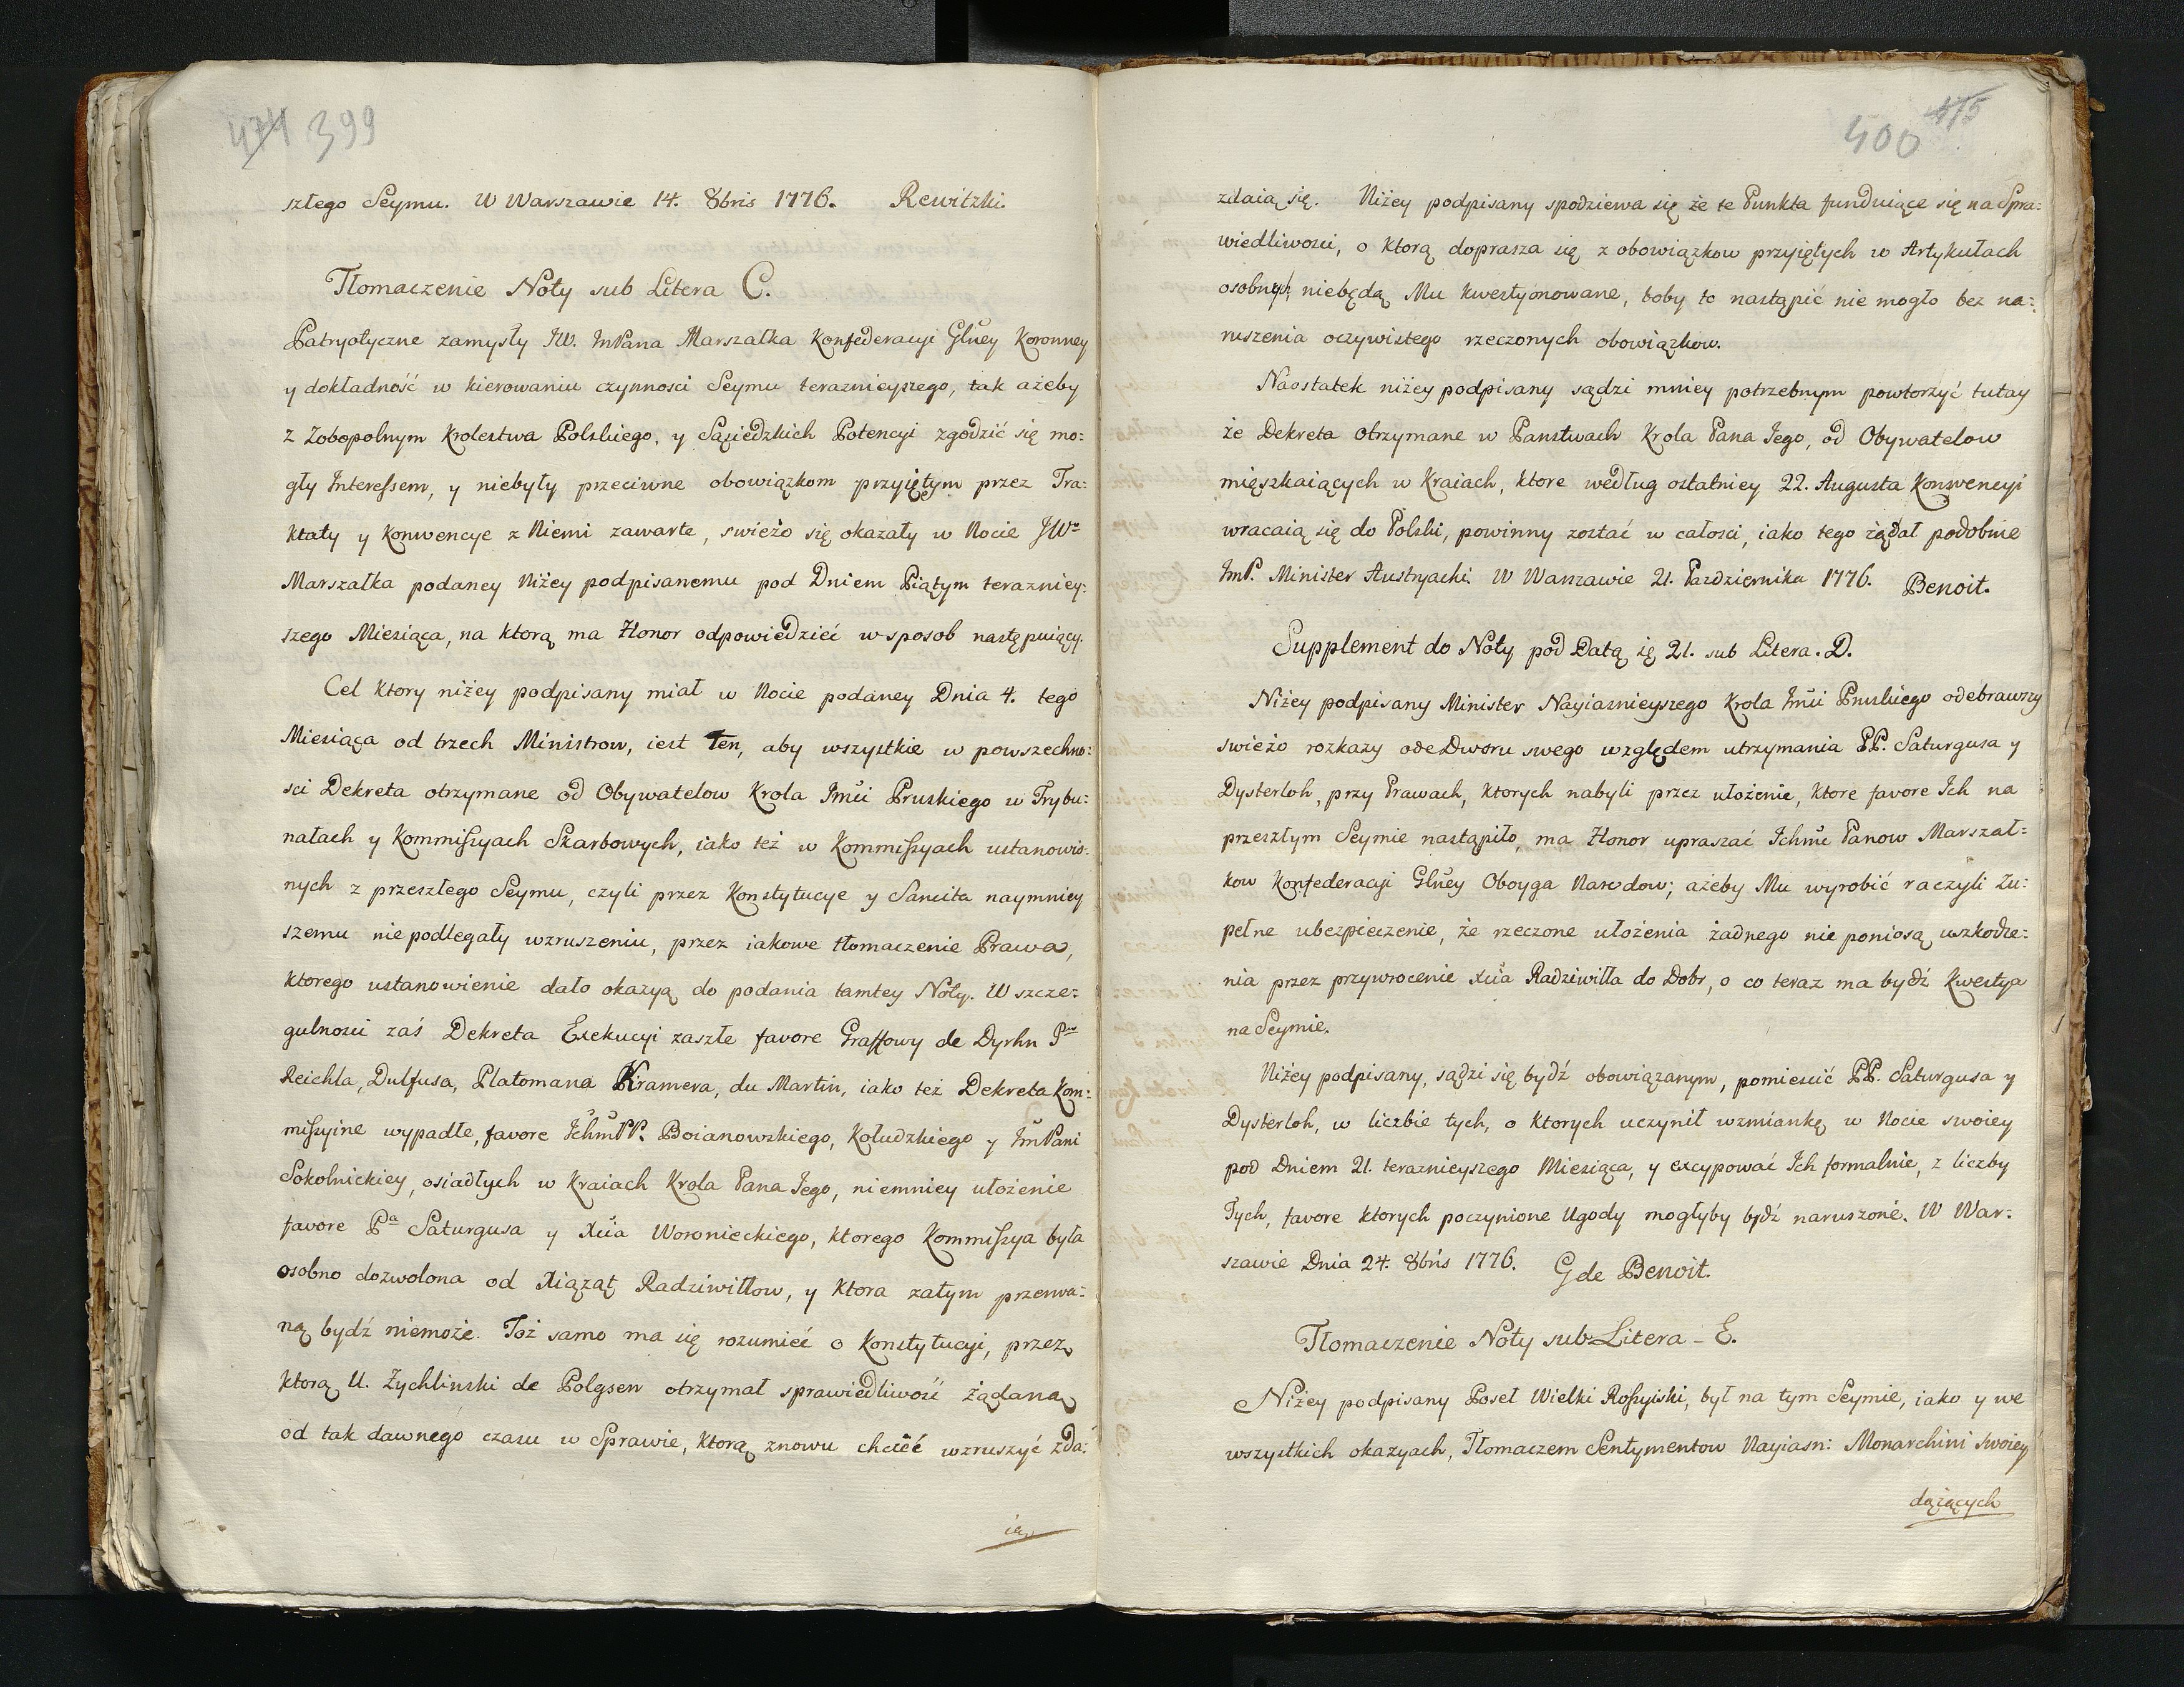 474 399
szłego Seymu. W Warszawie 14. 8bris 1776. Rewitzki.
Tłomaczenie Noty sub Litera C.
Patryotyczne zamysły JW. ImPana Marszałka Konfederacyi Glney Koronney
y dokładność w kierowaniu czynnosci Seymu teraznieyszego, tak ażeby
z Zobopolnym Krolestwa Polskiego, y Sąsiedzkich Potencyi zgodzić się mo:
gły Interessem, y niebyły przeciwne obowiązkom przyiętym przez Tra:
ktaty y Konwencye z Niemi zawarte, swieżo się okazały w Nocie JWo
Marszałka podaney Niżey podpisanemu pod Dniem Piątym terazniey:
szego Miesiąca, na ktorą ma Honor odpowiedzieć w sposob następuiący.
Cel ktory niżey podpisany miał w Nocie podaney Dnia 4. tego
Miesiąca od trzech Ministrow, iest Ten, aby wszystkie w powszechno:
sci Dekreta otrzymane od Obywatelow Krola Imći Pruskiego w Trybu:
nałach y Kommissyach Skarbowych, iako też w Kommissyach ustanowio:
nych z przeszłego Seymu, czyli przez Konstytucye y Sancita naymniey
szemu nie podlegały wzruszeniu, przez iakowe tłomaczenie Prawa,
ktorego ustanowienie dało okazyą do podania tamtey Noty. W szcze:
gulnosci zaś Dekreta Exekucyi zaszłe favore Graffowy de Dyrhn Pna
Reichla, Dulfusa, Platomana Kramera, du Martin, iako też Dekreta Kom:
missyine wypadłe, favore IchmPP. Boianowskiego, Kołudzkiego y ImPani
Sokolnickiey, osiadłych w Kraiach Krola Pana Jego, niemniey ułożenie
favore Pa Saturgusa y Xcia Woronieckiego, ktorego Kommissya była
osobno dozwolona od Xiążąt Radziwiłłow, y ktora zatym przerwa:
ną bydź niemoże. Toż samo ma się rozumieć o Konstytucyi, przez
ktorą U. Zychlinski de Polgsen otrzymał sprawiedliwość żądaną
od tak dawnego czasu w Sprawie, ktorą znowu chcieć wzruszyć zda:
ią
475
400
zdaią się. Niżey podpisany spodziewa się że te Punkta funduiące się na Spra:
wiedliwosci, o ktorą doprasza się z obowiązkow przyiętych w Artykułach
osobnych, niebędą Mu kwestyonowane, boby to nastąpić nie mogło bez na:
ruszenia oczywistego rzeczonych obowiązkow.
Naostatek niżey podpisany sądzi mniey potrzebnym powtorzyć tutay
że Dekreta otrzymane w Panstwach Krola Pana Jego, od Obywatelow
mięszkaiących w Kraiach, ktore według ostatniey 22. Augusta Konwencyi
wracaią się do Polski, powinny zostać w całosci, iako tego żądał podobnie
ImP. Minister Austryacki. W Warszawie 21. Pazdziernika 1776. Benoit.
Supplement do Noty pod Datą ię 21. sub Litera. D.
Niżey podpisany Minister Nayiasnieyszego Krola Imći Pruskiego odebrawszy
swieżo rozkazy ode Dworu swego względem utrzymania PP. Saturgusa y
Dysterloh, przy Prawach, ktorych nabyli przez ułożenie, ktore favore Ich na
przeszłym Seymie nastąpiło, ma Honor upraszać Ichmć Panow Marszał:
kow Konfederacyi Glney Oboyga Narodow; ażeby Mu wyrobić raczyli Zu:
pełne ubezpieczenie, że rzeczone ułożenia żadnego nie poniosą uszkodze:
nia przez przywrocenie Xcia Radziwiłła do Dobr, o co teraz ma bydź Kwestya
na Seymie.
Niżey podpisany, sądzi się bydź obowiązanym, pomiescić PP. Saturgusa y
Dysterloh, w liczbie tych, o ktorych uczynił wzmiankę w Nocie swoiey
pod Dniem 21. teraznieyszego Miesiąca, y excypować Ich formalnie, z liczby
Tych, favore ktorych poczynione Ugody mogłyby bydź naruszone. W War:
szawie Dnia 24. 8bris 1776. G de Benoit.
Tłomaczenie Noty sub Litera - E.
Niżey podpisany Poseł Wielki Rossyiski, był na tym Seymie, iako y we
wszystkich okazyach, Tłomaczem Sentymentow Nayiasn: Monarchini swoiey
dążących